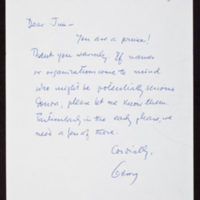 Dear Jim -
You are a prince!
Thank you warmly. If names
or organizations come to mind
who might be potentially serious
donors, please let me know them.
Particularly in the early phases, we
need a few of those.
Cordially,